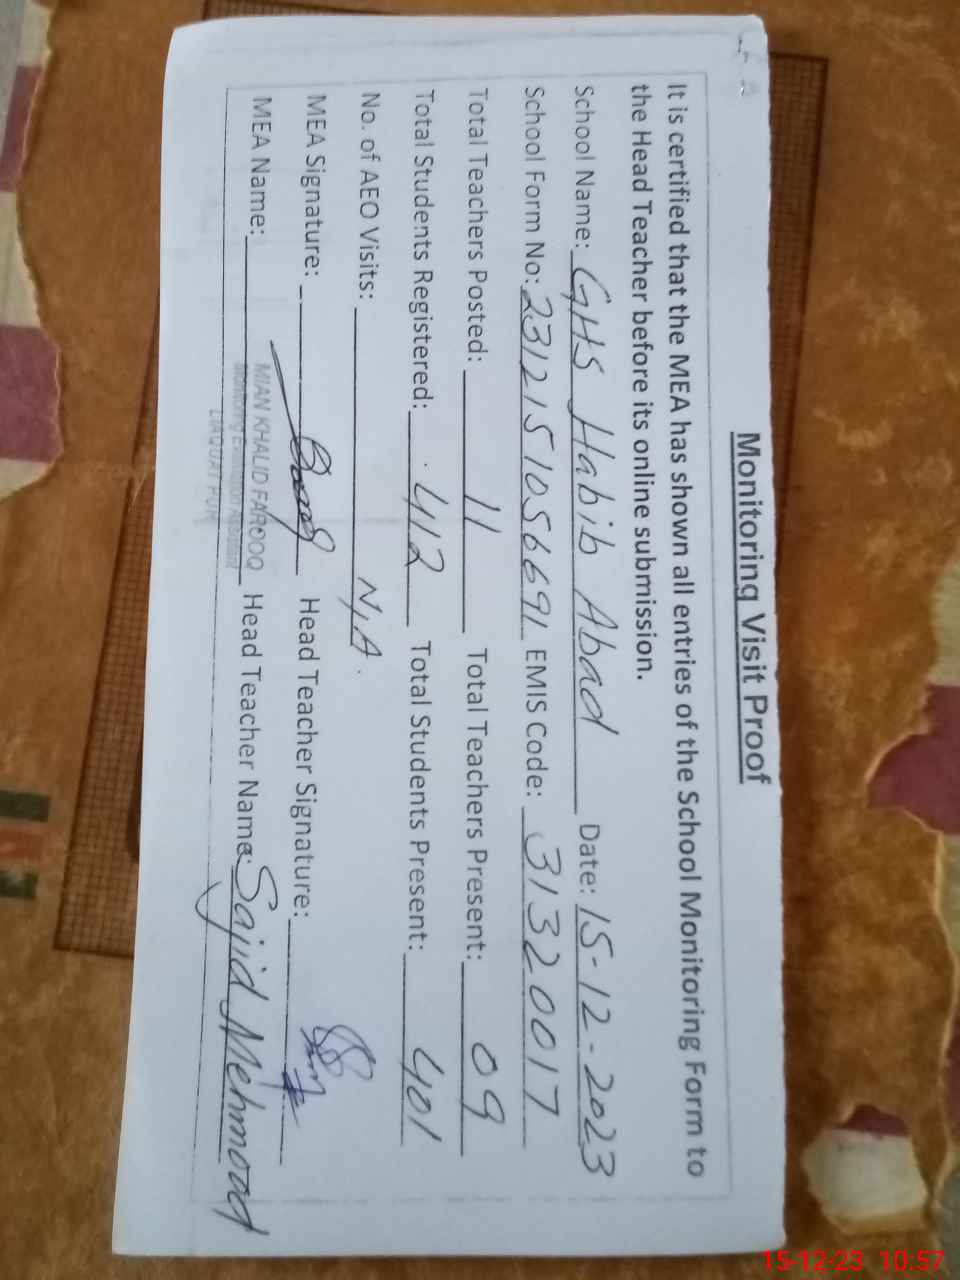 Monitoring Visit Proof
It is certified that the MEA has shown all entries of the School Monitoring Form to
the Head Teacher before its online submission.
School Name: GHS Habib Abad Date: 15-12-2023
School Form No: 2312151056691 EMIS Code: 31320017
Total Teachers Posted: 11 Total Teachers Present: 09
Total Students Registered: 412 Total Students Present: 401
No. of AEO Visits: N/A.
MEA Signature: Head Teacher Signature:
MEA Name: MIAN KHALID FAROOQ Head Teacher Name: Sajid Mehmood
Monitoring Evaluation Assistant
LIAQUAT PUR
15-12-23 10:57